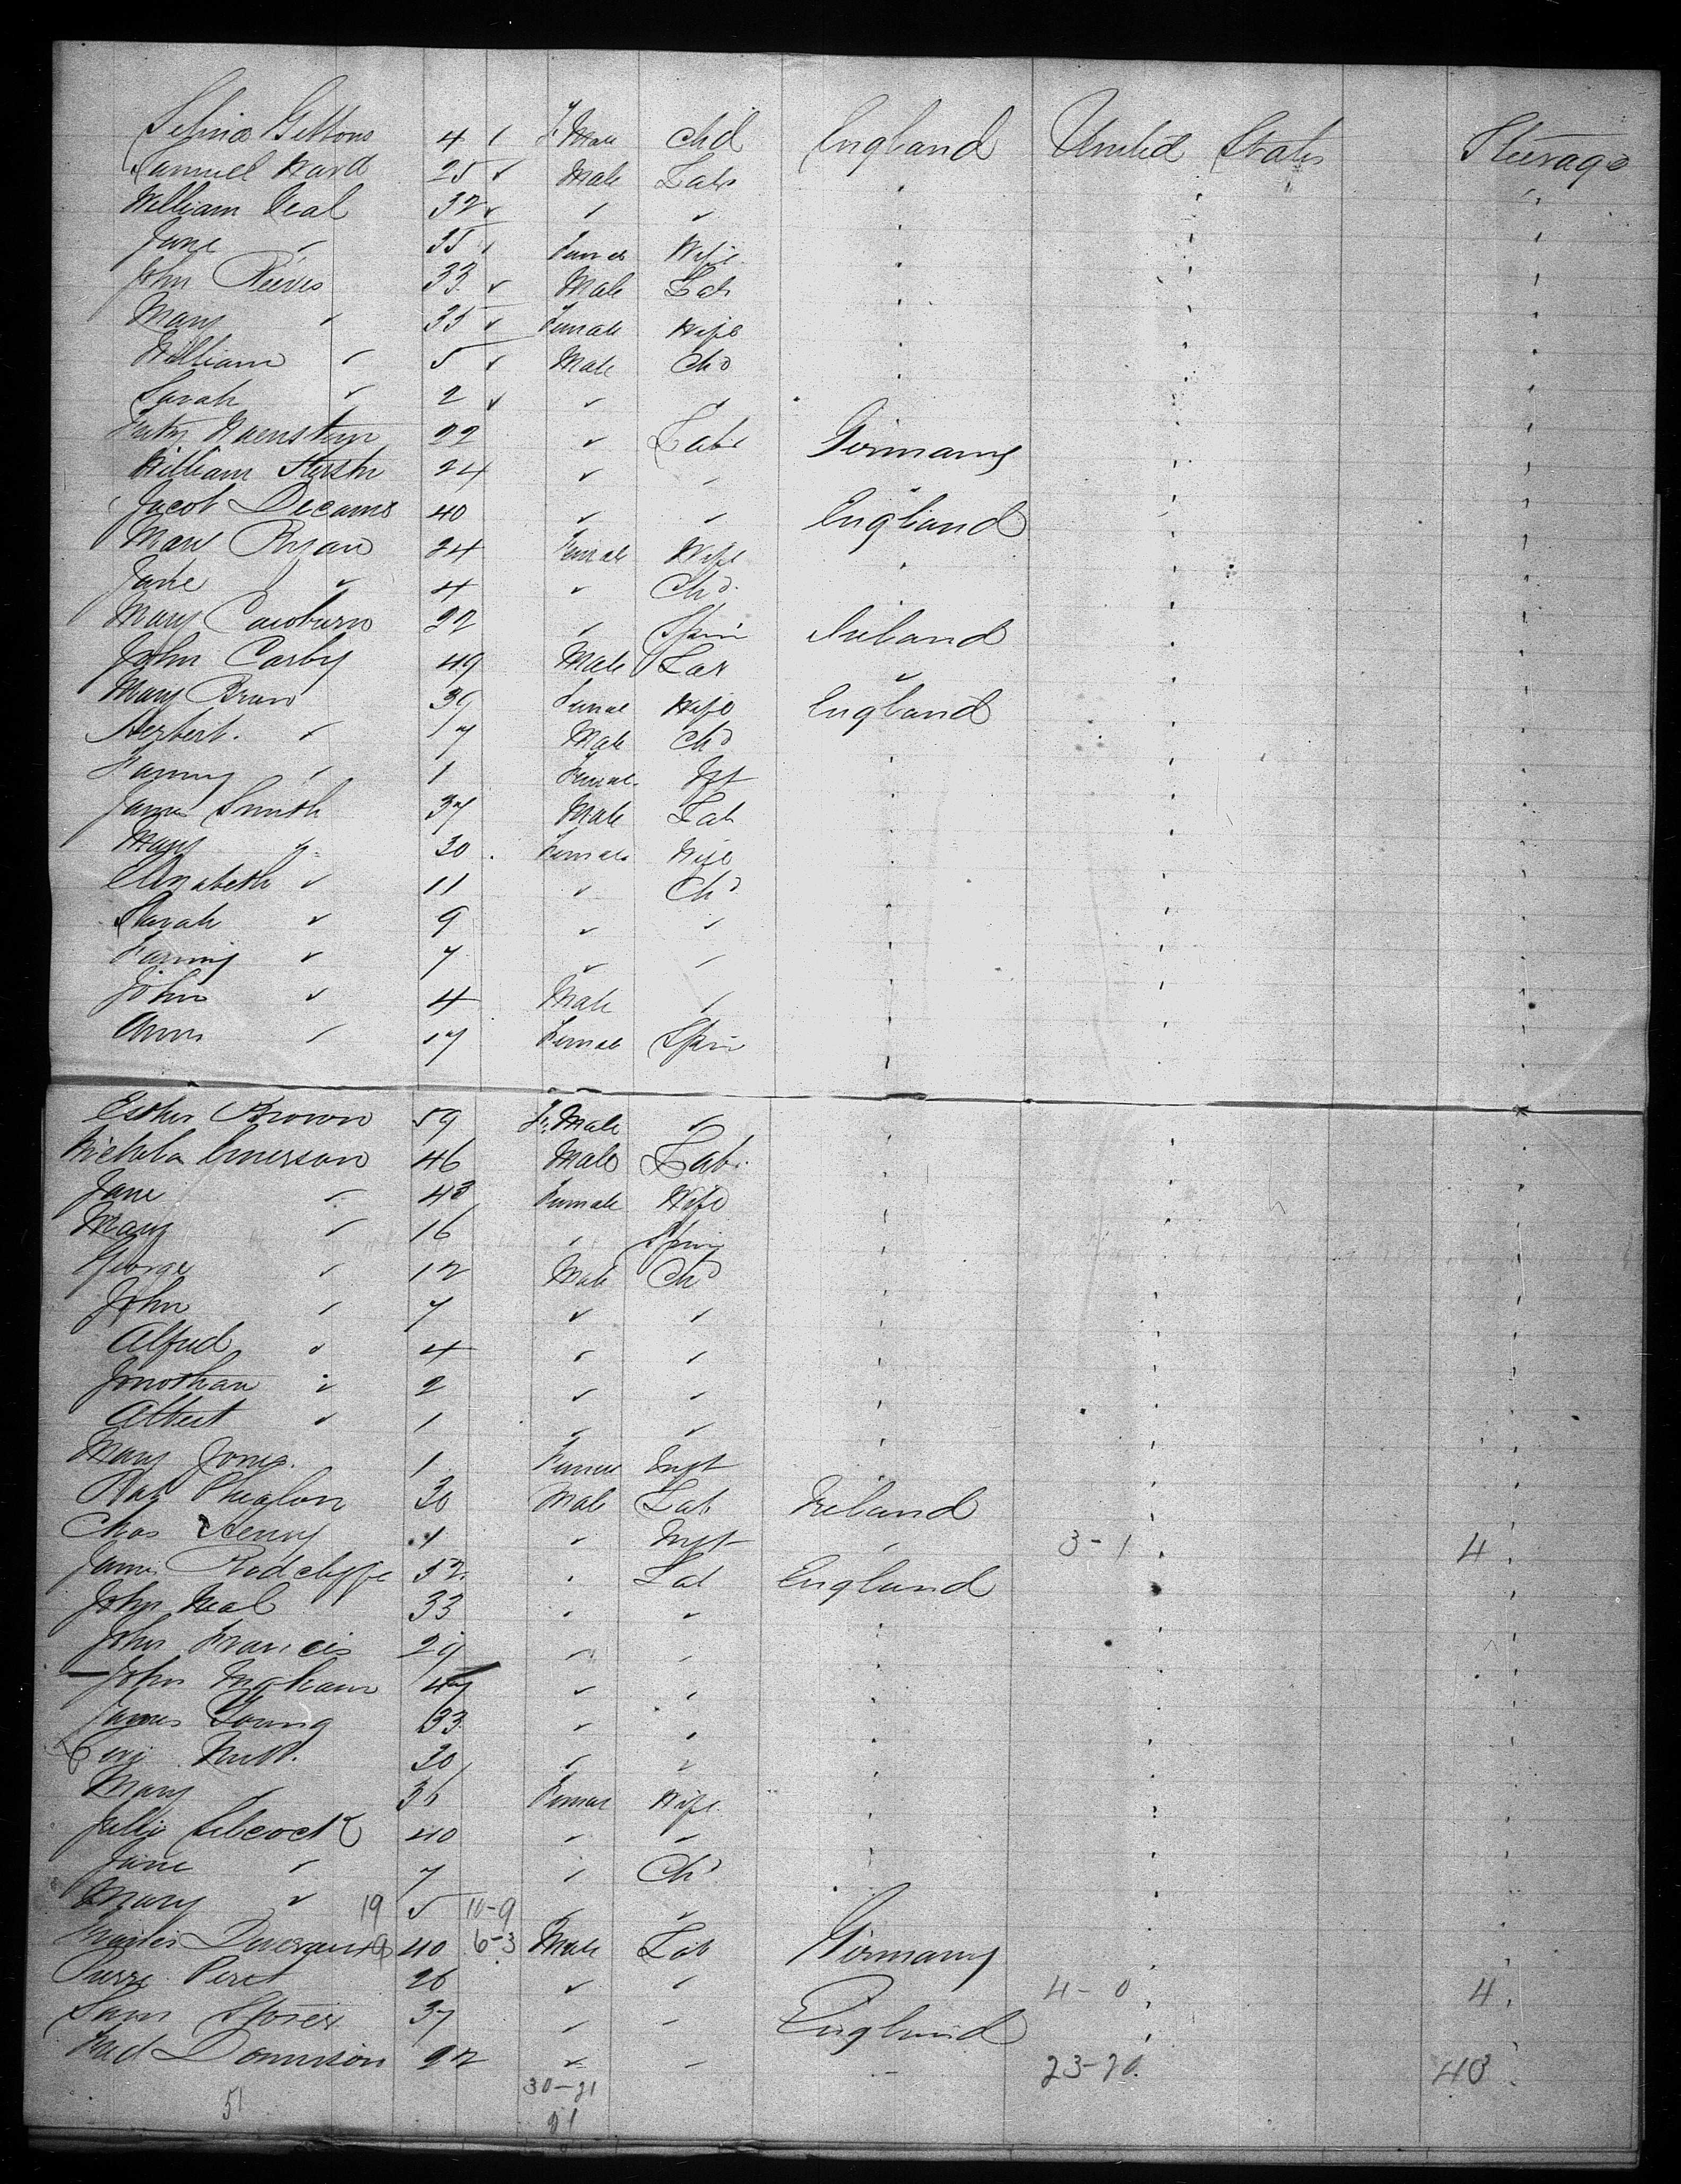 Selina Gittons 4 F. Male chd England United States Steerage
Samuel Ward 25 Male Lab " " "
William Neal 32 " " " " "
Jane " 35 Female Wife " " "
John Reeves 33 Male Lab " " "
Mary " 35 Female Wife " " "
William " 5 Male Chd " " "
Sarah " 2 " " " " "
22 " Lab Germany " "
William 24 " " " " "
Jacob Decams 40 " " England " "
Mary Ryan 24 Female Wife " " "
Jane " 4 " Chd " " "
Mary Cawburn 22 " Spin Ireland " "
John Corby 49 Male Lar " " "
Mary Brun 39 Female Wife England " "
Herbert " 17 Male Chd " " "
Fanny " 1 Female Inft " " "
James Smith 37 Male Lab " " "
Mary " 30 Female Wife " " "
Elizabeth " 11 " Chd " " "
Sarah " 9 " " " " "
Fanny " 7 " " " " "
John " 4 Male " " " "
Ann " 17 Female Spin " " "
Esther Brown 59 Fe Male " " " "
Nichola Emerson 46 Male Lab. " " "
Jane " 43 Female Wife " " "
Mary " 16 " Spin " " "
George " 12 Male Chd " " "
John " 7 " " " " "
Alfred " 4 " " " " "
Jonothan " 2 " " " " "
Albert " 1 " " " " "
Mary Jones. 1 Female Inft " " "
Pat Phealon 30 Male Lab Ireland " "
Chas Henry 1 " Inft " 3-1 " 4 "
James Radcliffe 52 " Lab England " "
John Neal 33 " " " " "
John Francis 29 " " " " "
John Ingham 47 " " " " "
James Young 33 " " " " "
Levi Nutt. 30 " " " " "
Mary " 36 Female Wife " " "
Silcock 40 " " " " "
Jane " 7 " Chd " " "
Mary " 19 5 10-9 " " " " "
9 40 6-3 Male Lab Germany " "
Pierre Peret 26 " " " 4-0 " 4 "
Sam 37 " " England " "
Fred Dennison 22 " " " 23-20. 43 "
30-21
51 21